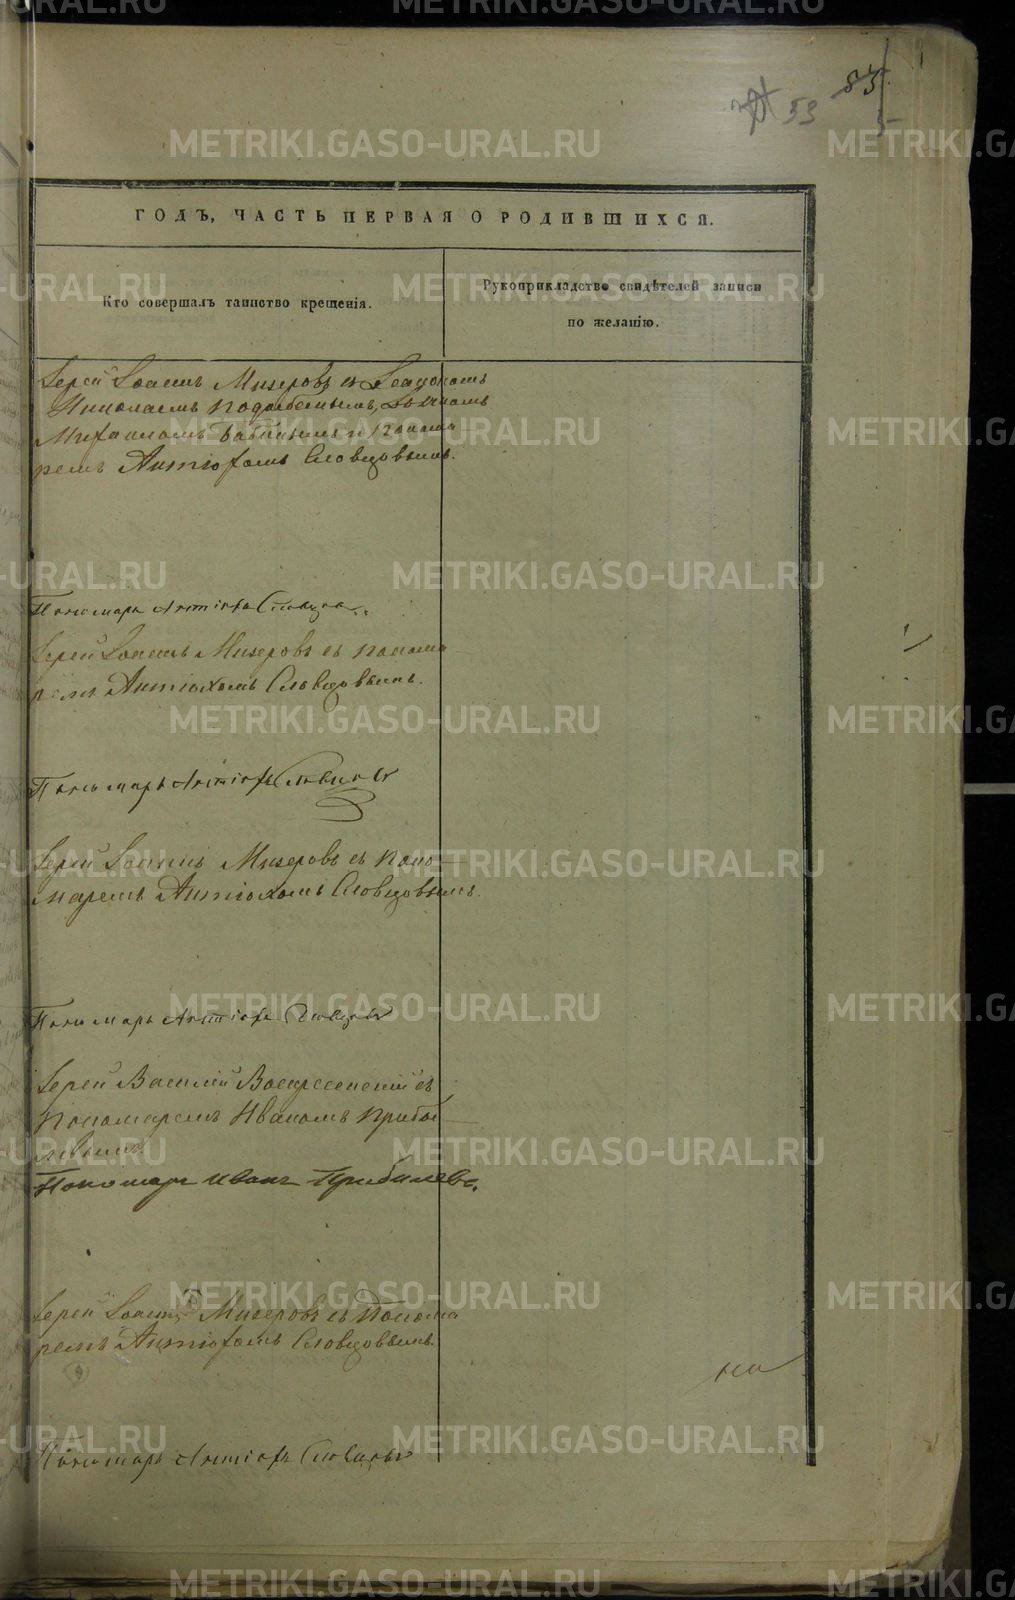 53 83
ГОДЪ, ЧАСТЬ ПЕРВАЯ О РОДИВШИХСЯ.
Кто совершалъ таинство крещенія.
Рукоприкладство свидѣтелей записи
по желанію.
Іерей Іоаннъ Мизеровъ съ Діакономъ
Николаемъ
Михаиломъ Бабинымъ и Понома
ремъ Антіохомъ Словцовымъ.
Пономарь Антіохъ Словцовъ
Іерей Іоаннъ Мизеровъ съ понома
ремъ Антіохомъ Словцовымъ.
Пономарь Антіохъ Словцовъ
Іерей Іоаннъ Мизеровъ съ поно-
маремъ Антіохомъ Словцовымъ.
Пономарь Антіохъ Словцовъ
Іерей Василій Воскресенскій съ
Пономаремъ Иваномъ Прибы-
левымъ
Пономарь Иванъ Прибылевъ.
Іерей Іоаннъ Мизеровъ съ Понома
ремъ Антіохомъ Словцовымъ.
Пономарь Антіохъ Словцовъ
METRIKI.GASO-URAL.RU